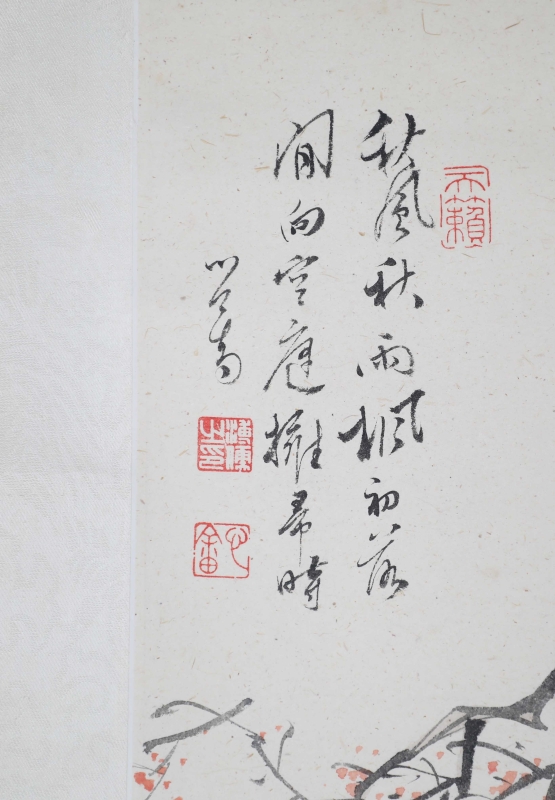 秋風秋雨楓初落
閒向空庭擁帚時
心畬
天籟
溥儒之印
心畬